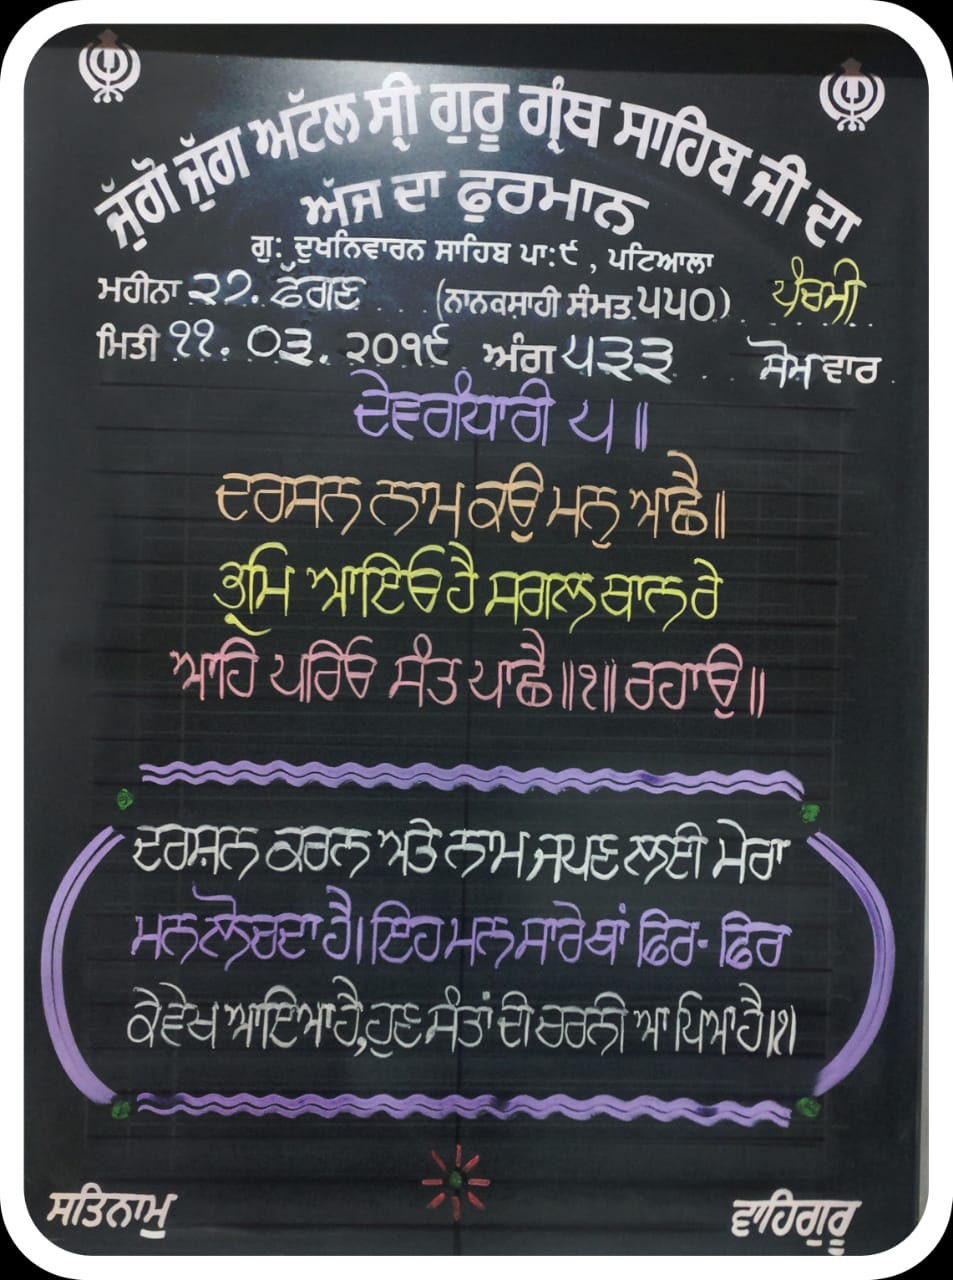 ਜੁੱਗੋ ਜੁੱਗ ਅਟੱਲ ਸ੍ਰੀ ਗੁਰੂ ਗ੍ਰੰਥ ਸਾਹਿਬ ਜੀ ਦਾ
ਅੱਜ ਦਾ ਫੁਰਮਾਨ
ਗੁ: ਦੁਖਨਿਵਾਰਨ ਸਾਹਿਬ ਪਾ:੯ , ਪਟਿਆਲਾ
ਮਹੀਨਾ ੨੭. ਫੱਗਣ (ਨਾਨਕਸ਼ਾਹੀ ਸੰਮਤ ੫੫੦) ਪੰਚਮੀ
ਮਿਤੀ ੧੧. ੦੩. ੨੦੧੯ ਅੰਗ ੫੩੩ ਸੋਮਵਾਰ
ਦੇਵਗੰਧਾਰੀ ੫ ॥
ਦਰਸਨ ਨਾਮ ਕਉ ਮਨੁ ਆਛੈ॥
ਭ੍ਰਮਿ ਆਇਓ ਹੈ ਸਗਲ ਥਾਨ ਰੇ
ਆਹਿ ਪਰਿਓ ਸੰਤ ਪਾਛੈ॥੧॥ ਰਹਾਉ॥
ਦਰਸ਼ਨ ਕਰਨ ਅਤੇ ਨਾਮ ਜਪਣ ਲਈ ਮੇਰਾ
ਮਨ ਲੋਚਦਾ ਹੈ। ਇਹ ਮਨ ਸਾਰੇ ਥਾਂ ਫਿਰ- ਫਿਰ
ਕੇ ਵੇਖ ਆਇਆ ਹੈ, ਹੁਣ ਸੰਤਾਂ ਦੀ ਚਰਨੀ ਆ ਪਿਆ ਹੈ।੧।
ਸਤਿਨਾਮੁ ਵਾਹਿਗੁਰੂ